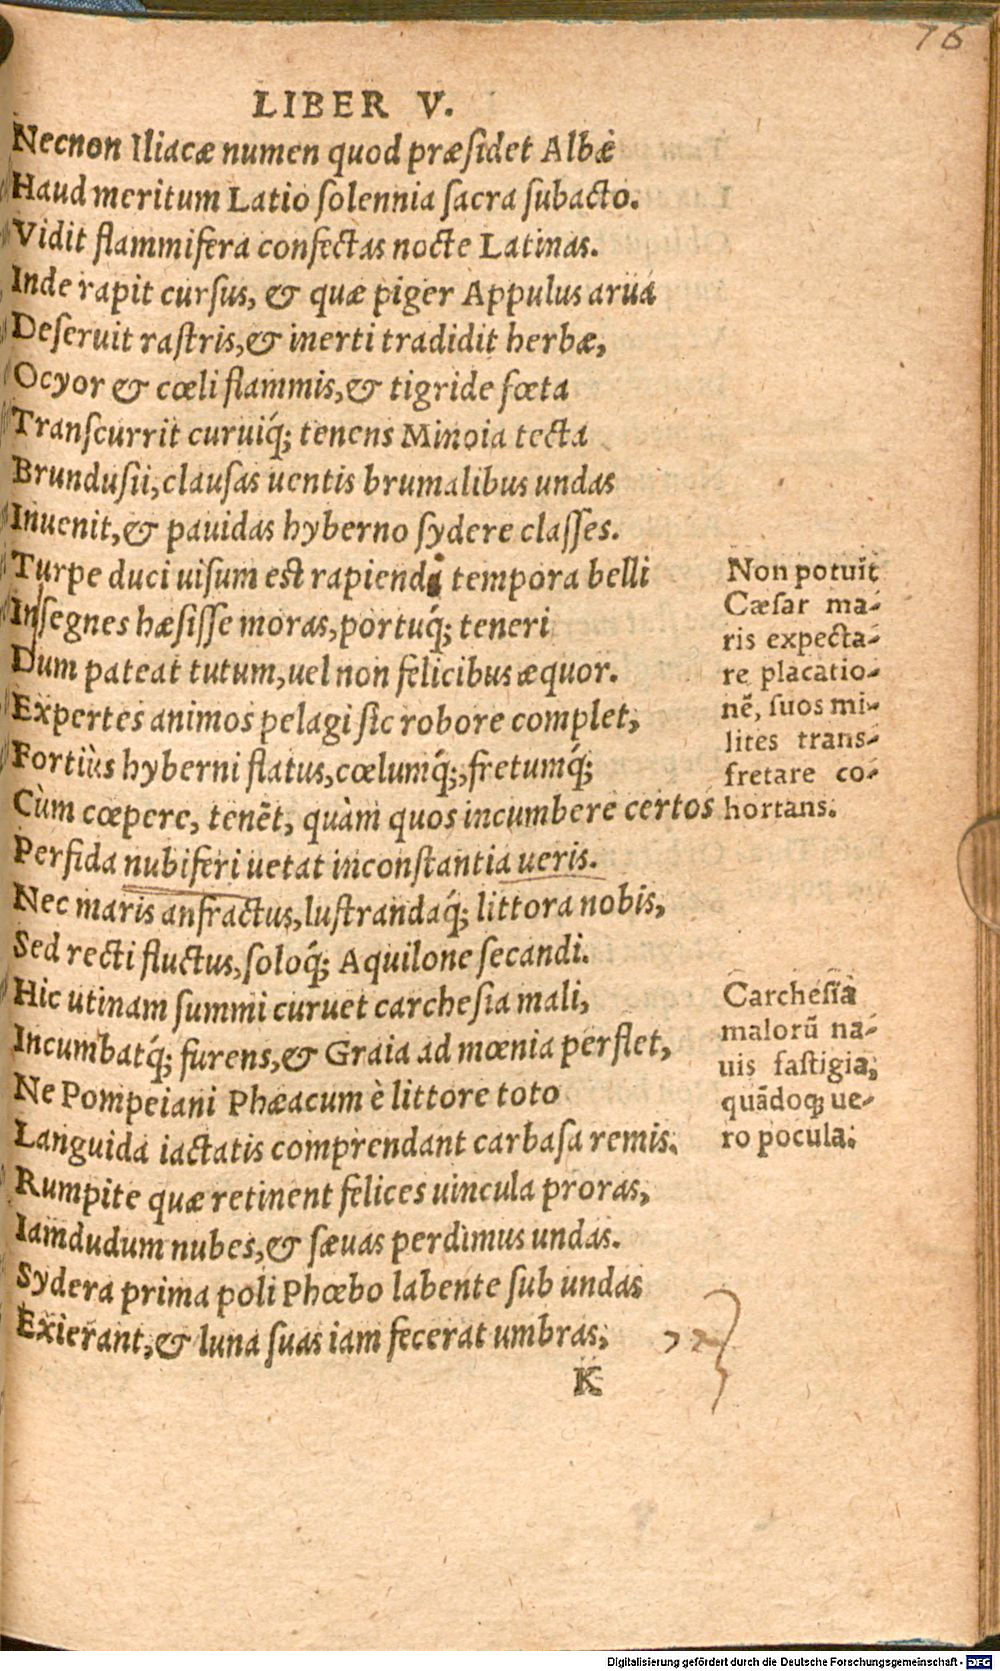 76
LIBER V.
Necnon Iliacæ numen quod præsidet Albæ
Haud meritum Latio solennia sacra subacto.
Vidit flammifera confectas nocte Latinas.
Inde rapit cursus, & quæ piger Appulus arua
Deseruit rastris, & inerti tradidit herbæ,
Ocyor & cœli flammis, & tigride fœta
Transcurrit curuiq́; tenens Minoia tecta
Brundusii, clausas uentis brumalibus undas
Inuenit, & pauidas hyberno sydere classes.
Turpe duci uisum est rapiendi tempora belli
In segnes hæsisse moras, portuq́; teneri
Dum pateat tutum, uel non felicibus æquor.
Expertes animos pelagi sic robore complet,
Fortiùs hyberni flatus, cœlumq́;, fretumq́;
Cùm cœpere, tenẽt, quàm quos incumbere certos
Perfida nubiferi uetat inconstantia ueris.
Nec maris anfractus, lustrandaq́; littora nobis,
Sed recti fluctus, soloq́; Aquilone secandi.
Hic utinam summi curuet carchesia mali,
Incumbatq́; furens, & Graia ad mœnia perflet,
Ne Pompeiani Phæacum è littore toto
Languida iactatis comprendant carbasa remis.
Rumpite quæ retinent felices uincula proras,
Iamdudum nubes, & sæuas perdimus undas.
Sydera prima poli Phœbo labente sub undas
Exierant, & luna suas iam fecerat umbras,
K
Non potuit
Cæsar ma-
ris expecta-
re placatio-
nẽ, suos mi-
lites trans-
fretare co-
hortans.
Carchesia
malorũ na-
uis fastigia,
quãdoq; ue-
ro pocula.
Digitalisierung gefördert durch die Deutsche Forschungsgemeinschaft - DFG